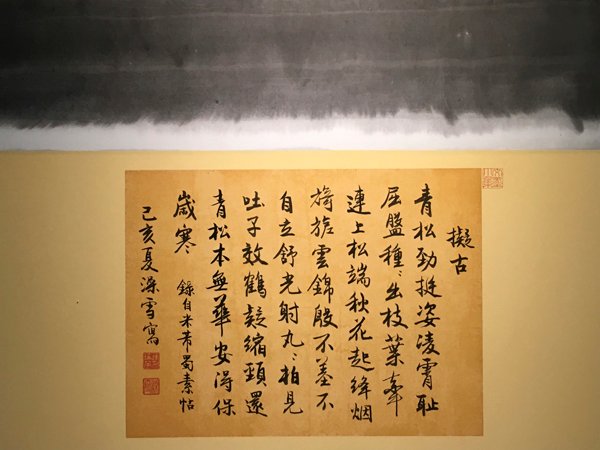 擬古
青松勁挺姿凌霄恥
屈盤種〻出枝葉牽
連上松端秋花起絳烟
旖旎雲錦殷不羞不
自立舒光射丸〻柏見
吐子效鶴疑縮頸還
青松本無華安得保
歲寒 錄自米芾蜀素帖
己亥夏澡雪寫